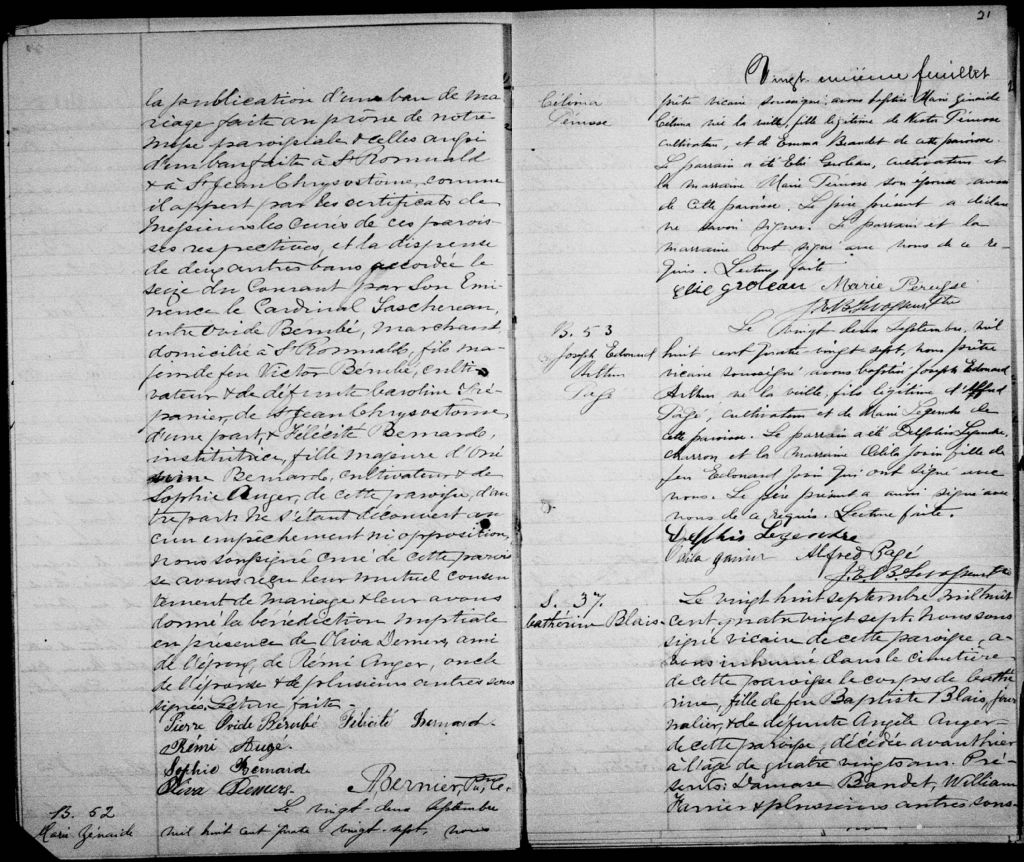 la publication d'un ban de ma
riage faite au prône de notre
messe paroissiale & celles aussi
d'un ban faite à St Romuald
& à St Jean Chrysostôme, comme
il appert par les certificats de
Messieurs les Curés de ces parois-
ses respectives, et la dispense
de deux autres bans accordée le
seize du Courant par Son Emi
nence le Cardinal Taschereau,
entre Ovide Berubé, marchand
domicilié à St Romuald, fils ma-
jeur de feu Victor Berubé, culti-
vateur & de défunte Caroline Tré-
panier, de St Jean Chrysostôme,
d'une part, & Félécité Bernard,
institutrice, fille majeure d'
Bernard, cultivateur & de
Sophie Auger, de cette paroisse, d'au
tre part; Ne s'étant découvert au
cun empêchement ni opposition,
nous soussigné Curé de cette parois
se avons reçu leur mutuel consen
tement de mariage & leur avons
donné la bénédiction nuptiale
en présence de Oliva Demers, ami
de l'époux, de Rémi Auger, oncle
de l'épouse & de plusieurs autres sous
signés. Lecture faite.
Pierre Ovide Bérubé Félicité Bernard
Rémi Augé.
Sophie Bernarde
Oliva Demers. Bernier, Ptre, C.
B. 52
Marie Zénaïde
Le vingt-deux septembre
mil huit cent quatre vingt-sept, nous
21
Vingt unième feuillet
Célima
Pérusse
prêtre vicaire soussigné, avons baptisé Marie Zénaïde
Célima née la veille, fille légitime de Pérusse
cultivateur, et de Emma Beaudet de cette paroisse.
Le parrain a été Elie Groleau, cultivateur et
la marraine Marie Pérusse son épouse aussi
de cette paroisse. Le père présent a déclaré
ne savoir signer. Le parrain et la
marraine ont signé avec nous de ce re
quis. Lecture faite
Elie Groleau Marie Perusse
B. 53
Joseph Edouard
Arthur
Pagé
Le vingt deux Septembre, mil
huit cent quatre-vingt sept, nous prêtre
vicaire soussigné avons baptisé Joseph Edouard
Arthur né la veille, fils légitime d'Alfred
Pagé, cultivateur et de Marie Legendre de
cette paroisse. Le parrain a été Delphis Legendre,
et la Marraine fille de
feu Edouard qui ont signé avec
nous. Le père présent a aussi signé avec
nous de ce requis. Lecture faite.
Delphis Legendre
Alfred Pagé
S. 37.
Cathérine Blais
Le vingt huit septembre mil huit
cent quatre vingt sept, Nous sous
signé vicaire de cette paroisse, a-
vons inhumé dans le cimetière
de cette paroisse le corps de Cathé
rine, fille de feu Baptiste Blais, jour
nalier, & de défunte Angèle Auger
de cette paroisse, décédée avant hier
à l'âge de quatre vingts ans. Pré-
sents: Damase Baudet, William
& plusieurs autres sous-